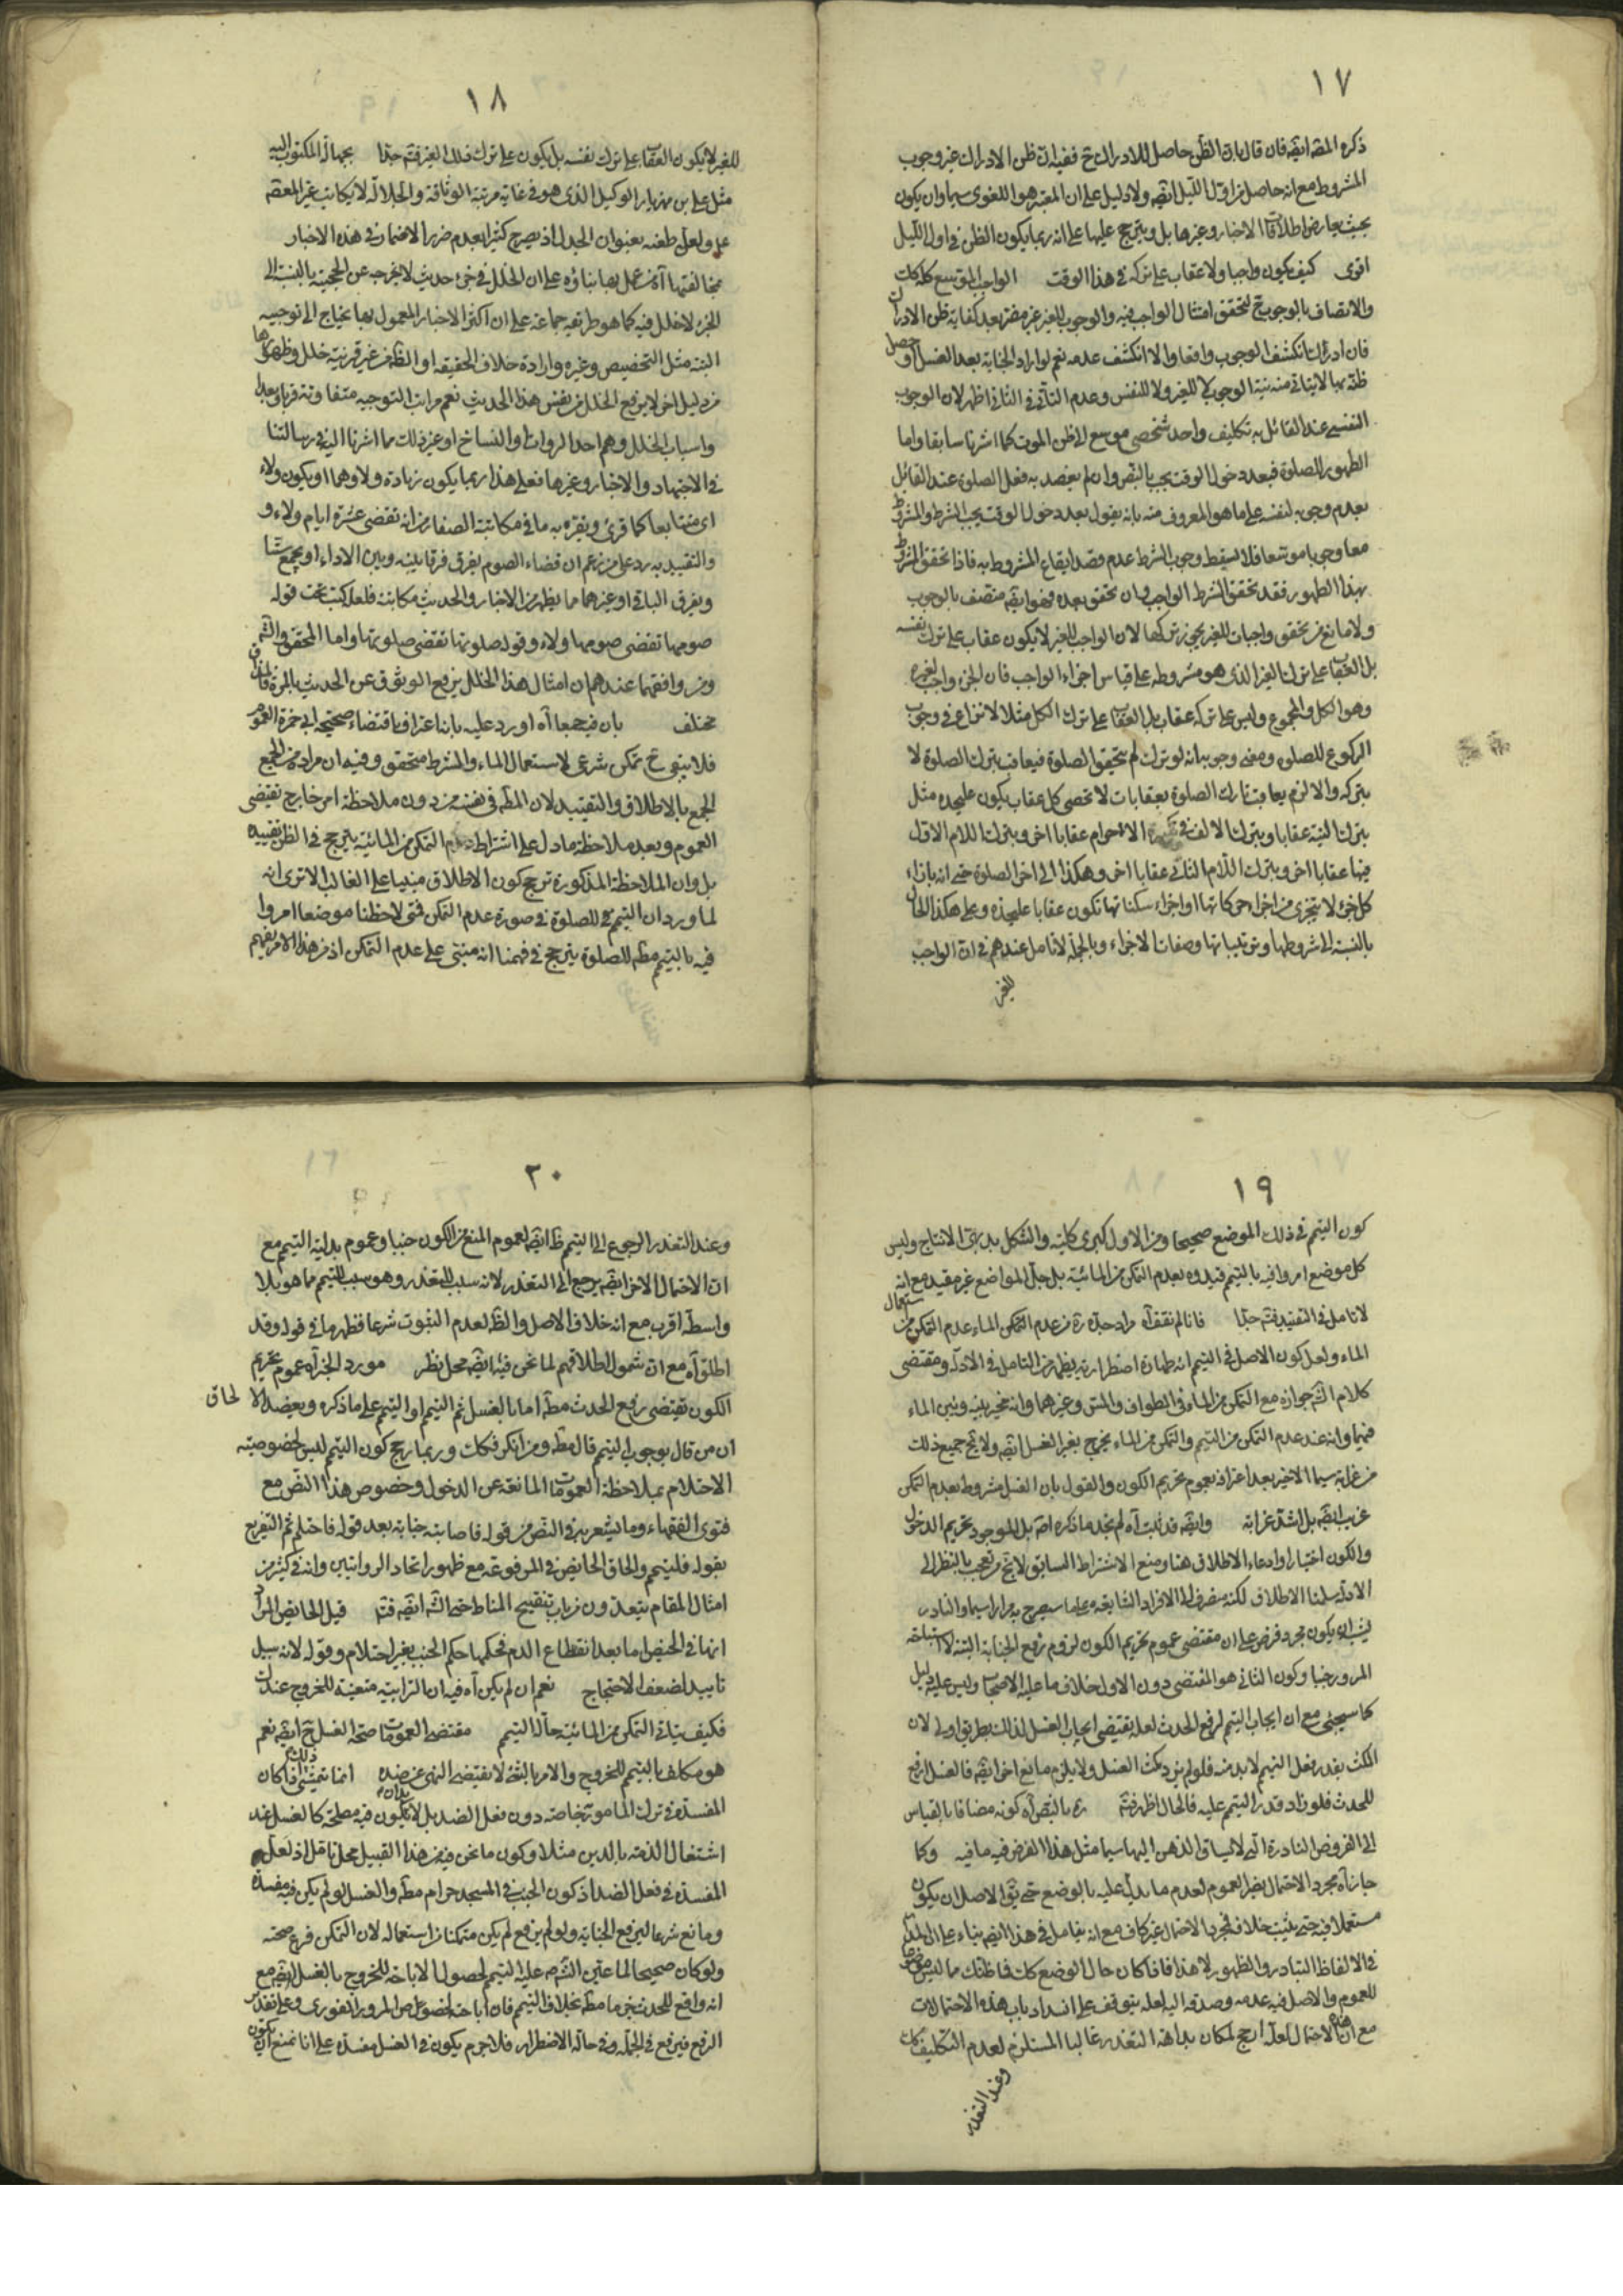 ١٧
ذكره المصّه ايضه فان قال بان الظن حاصل للادراك ح ففيه ان ظن الادراك غير وجوب
المشروط مع انه حاصل من اول الليل ايضه ولا دليل على ان المعتبر هو اللغوى سيما وان يكون
بحيث يعارض اطلاقات الاخبار وغيرها بل ويترجح عليها على انه ربما يكون الظن فى اول الليل
اقوى كيف يكون واجبا ولا عقاب على تركه فى هذا الوقت الواجب الموسع كله كك
والاتصاف بالوجوب ح لتحقق امتثال الواجب فيه والوجوب للغير غير مضر بعد كفاية ظن الادراك
فان ادراك انكشف الوجوب واقعا والا انكشف عدمه نعم لو اراد الجنابة بعد الغسل او حصل
ظنه بها لايتاتى منه نية الوجوب لا للغير ولا للنفس وعدم التأتى فى الثانى اظهر لان الوجوب
النفسى عند القائل به تكليف واحد شخصى موسع الى ظن الموت كما اشرنا سابقا واما
الطهور للصلوة فبعد دخول الوقت يجب بالنص وان لم يقصد به فعل الصلوة عند القائل
بعدم وجوبه لنفسه على ما هو المعروف منه بانه يقول بعد دخول الوقت يجب الشرط والمشروط
معا وجوبا موسعا فلا يسقط وجوب الشرط عدم قصد ايقاع المشروط به فاذا تحقق المشروط
بهذا الطهور فقد تحقق الشرط الواجب وان تحقق بعده فهو ايضه متصف بالوجوب
ولا مانع من تحقق واجبات للغير يجوز تركها لان الواجب للغير لا يكون عقاب على ترك نفسه
بل العقاب على ترك الغير الذى هو مشروطه على قياس اجزاء الواجب فان الجزء واجب لغيره
وهو الكل والمجموع وليس على تركه عقاب بل العقاب على ترك الكل مثلا لا نزاع فى وجوب
الركوع للصلوة ومعنى وجوبه انه لو ترك لم يتحقق الصلوة فيعاقب بترك الصلوة لا
بتركه والا لزم يعاقب تارك الصلوة بعقابات لا تحصى كل عقاب يكون عليحده مثل
بترك النية عقابا وبترك الالف فى تكبيرة الاحرام عقابا اخر وبترك اللام الاول
فيها عقابا اخر وبترك اللام الثانى عقابا اخر وهكذا الى اخر الصلوة حتى انه بازاء
كل جزء لا يتجزى من اجزاء حركاتها او اجزاء سكناتها تكون عقابا عليحده وعلى هكذا الحال
بالنسبة الى شروطها وترتيباتها وصفات الاجزاء وبالجملة لا تامل عندهم فى ان الواجب
للغير
١٨
للغير لا يكون العقاب على ترك نفسه بل يكون على ترك ذلك الغير فته جدّا بجهالة المكتوب اليه
مثل على بن مهزيار الوكيل الذى هو فى غاية مرتبة الوثاقة والجلالة لا يكاتب غير المعصوم
ع ولعل طعنه بعنوان الجدل اذ يصرح كثيرا بعدم ضرر الاضمار فى هذه الاخبار
مخالفتها آه من عمل بها بناؤه على ان الخلل فى جزء حديث لا يخرجه عن الحجية بالنسبة الى
الجزء لا خلل فيه كما هو طريقة جماعة على ان اكثر الاخبار المعمول بها يحتاج الى توجيه
البتة مثل التخصيص وغيره وارادة خلاف الحقيقة او الظه من غير قرينة خلل وظهورها
من دليل اخر لا يرفع الخلل من نفس هذا الحديث نعم مراتب التوجيه متفاوتة قربا وبعدا
واسباب الخلل وهم احد الروات او النساخ او غير ذلك مما اشرنا اليه فى رسالتنا
فى الاجتهاد والاخبار وغيرها فعلى هذا ربما يكون زيادة ولا وهما او يكون ولاء
اى متتابعا كما قرئ ويقربه ما فى مكاتبة الصفار من انه تقضى عشرة ايام ولاء و
والتقييد به رد على من زعم ان قضاء الصوم يفرق فرقا بينه وبين الاداء او يجمع ستا
ويفرق الباقى او غيرهما مما يظهر من الاخبار والحديث مكاتبة فلعله كتب تحت قوله
صومها تقضى صومها ولاء وقوله صلوتها تقضى صلوتها واما المحقق والشه
ومن وافقهما عندهم ان امثال هذا الخلل يرفع الوثوق عن الحديث بالمرة
مختلف بان فيجمعا آه اورد عليه باننا اعتراف باقتضاء صحيحة ابى حمزة العموم
فلا يبقى ح تمكن شرعى لاستعمال الماء والشرط متحقق وفيه ان مراده من الجمع
الجمع بالاطلاق والتقييد لان المطه فى نفسه من دون ملاحظة امر خارج تقتضى
العموم وبعد ملاحظة ما دل على اشتراط عدم التمكن من المائية يترجح فى الظن تقييده
بل وان الملاحظة المذكورة ترجح كون الاطلاق مبنيا على الغالب الا ترى انه
لما ورد ان التيمم للصلوة فى صورة عدم التمكن فمتى لاحظنا موضعا امروا
فيه بالتيمم مطه للصلوة يترجح فى فهمنا انه مبنى على عدم التمكن اذ من هذا الامر يفهم
١٩
كون التيمم فى ذلك الموضع صحيحا ومن الاول كبرى كلية والشكل بديهى الانتاج وليس
كل موضع امروا فيه بالتيمم قيدوه بعدم التمكن من المائية بل جل المواضع غير مقيد مع انه
لا تامل فى التقييد فته جدّا فانا لم نقف آه مراد جده ره من عدم التمكن الماء عدم التمكن من استعمال
الماء ولعل كون الاصل فى التيمم انه طهارة اضطرارية يظهر من التامل فى الادلة ومقتضى
كلام الشه جوازه مع التمكن من الماء فى الطواف والمس وغيرهما وانه مخير بينه وبين الماء
فيهما وانه عند عدم التمكن من التيمم والتمكن من الماء يخرج بغير الغسل ايضه ولا يخ جميع ذلك
من غرابة سيما الاخير بعد اعترافه بعموم تحريم الكون والقول بان الغسل مشروط بعدم التمكن
غريب ايضه بل اشد غرابة وايضه قد ثبت آه لم نجد ما ذكره اصه بل الموجود تحريم الدخول
والكون اختيارا وادعاء الاطلاق هنا ومنع الاشتراط السابق لا يخ من تعجب بالنظر الى
الادلة سلمنا الاطلاق لكنه ينصرف الى الافراد الشايعة على ما سيصرح به مرارا سيما والنادر
ليس ان يكون مجرد فرض على ان مقتضى عموم تحريم الكون لزوم رفع الجنابة البتة لا استباحة
المرور جنبا وكون الثانى هو المقتضى دون الاول خلاف ما عليه الاصحاب وليس عليه دليل
كما سيجئ مع ان ايجاب التيمم لرفع الحدث لعله يقتضى ايجاب الغسل لذلك بطريق اولى لان
المكث بقدر فعل التيمم لا بد منه فلو لم يزد مكث الغسل ولا يلزم مانع اخر ايضه فالغسل ارفع
للحدث فلو زاد قدر التيمم عليه فالحال اظهر فته ره بالنص آه كونه مضافا بالقياس
الى الفروض النادرة التى لا ينساق الذهن اليها سيما مثل هذا الفرض فيه ما فيه وكما
جاز آه مجرد الاحتمال يضر العموم لعدم ما يدل عليه بالوضع حتى يقوالاصل ان يكون
مستعملا فيه حتى يثبت خلافه فمجرد الاحتمال غير كاف مع انه يتامل فى هذا ايضه بناء على ان المدار
فى الالفاظ التبادر والظهور لا هذا فاذا كان حال الوضع كك فما ظنك مما ليس موضوعا
للعموم والاصل فيه عدمه وصدقه البه لعله يتوقف على انسداد باب هذه الاحتمالات
مع ان هذه الاحتمال لعله ارجح لمكان بداهة التعذر غالبا المستلزم لعدم التكليف كك
وعند التعذر
٢٠
وعند التعذر الرجوع الى التيمم ظه ايضه لعموم المنع من الكون جنبا وعموم بدلية التيمم مع
ان الاحتمال الاخر ايضه يرجع الى التعذر لانه سبب التعذر وهو سبب التيمم مما هو بلا
واسطة اقرب مع انه خلاف الاصل والظه لعدم الثبوت شرعا فظهر ما فى قوله وقد
اطلق آه مع ان شمول اطلاقهم لما نحن فيه ايضه محل نظر مورد الخبر آه عموم تحريم
الكون تقتضى رفع الحدث مطه اما بالغسل ثم التيمم او التيمم على ما ذكره ويعضد الالحاق
ان من قال بوجوب التيمم قال مطه ومن انكر فكك وربما يرجح كون التيمم ليس لخصوصية
الاحتلام بملاحظة العمومات المانعة عن الدخول وخصوص هذا النص مع
فتوى الفقهاء وما يشعر به فى النص من قوله فاصابته جنابة بعد قوله فاحتلم ثم التفريع
بقوله فليتيمم والحاق الحائض فى المرفوعة مع ظهور اتحاد الروايتين وانه فى كثير من
امثال المقام يتعدون من باب تنقيح المناط حتى الشه ايضه فته قيل الحائض المراد
انها فى الحيض اما بعد انقطاع الدم فحكمها حكم الجنب بغير احتلام وقوله لانه سبيل
تاييد لضعف الاحتجاج نعم ان لم يكن آه فيه ان الترابية متعينة للخروج عندك
فكيف يتاتى التمكن من المائية حالة التيمم مقتضى العمومات صحة الغسل ح ايضه نعم
هو مكلف بالتيمم للخروج والامر بالشئ لا يقتضى النهى عن ضده انما يتمشى ذلك اذا كان
المفسدة فى ترك المامور به خاصة دون فعل الضد بل لابد ان يكون فيه مصلحة كالغسل عند
اشتغال الذمة بالدين مثلا وكون ما نحن فيه من هذا القبيل محل تامل اذ لعل
المفسدة فى فعل الضد اذ كون الجنب فى المسجد حرام مطه والغسل لو لم يكن فيه مفسدة
ومانع شرعا ليرفع الجنابة ولو لم يرفع لم يكن متمكنا من استعماله لان التمكن فرع صحته
ولو كان صحيحا لما عين الشه عليه التيمم لحصول الاباحة للخروج بالغسل ايضه مع
انه واقع للحدث جزما مطه بخلاف التيمم فان اباحته لخصوص المرور الفورى وعلى تقدير
الرفع فيرفع فى الجملة وفى حالة الاضطرار فلا جرم يكون فى الغسل مفسدة على انا نمنع ان يكون